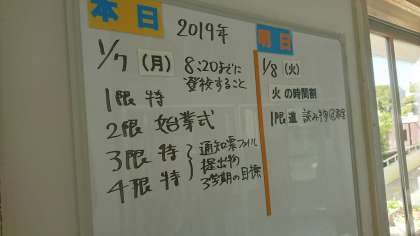 本日
2019年
1/7 (月) 8:20までに
登校すること
1限 特
2限 始業式
3限 特
4限 特
通知票ファイル
提出物
3学期の目標
明日
1/8 (火)
火の時間割
1限 道